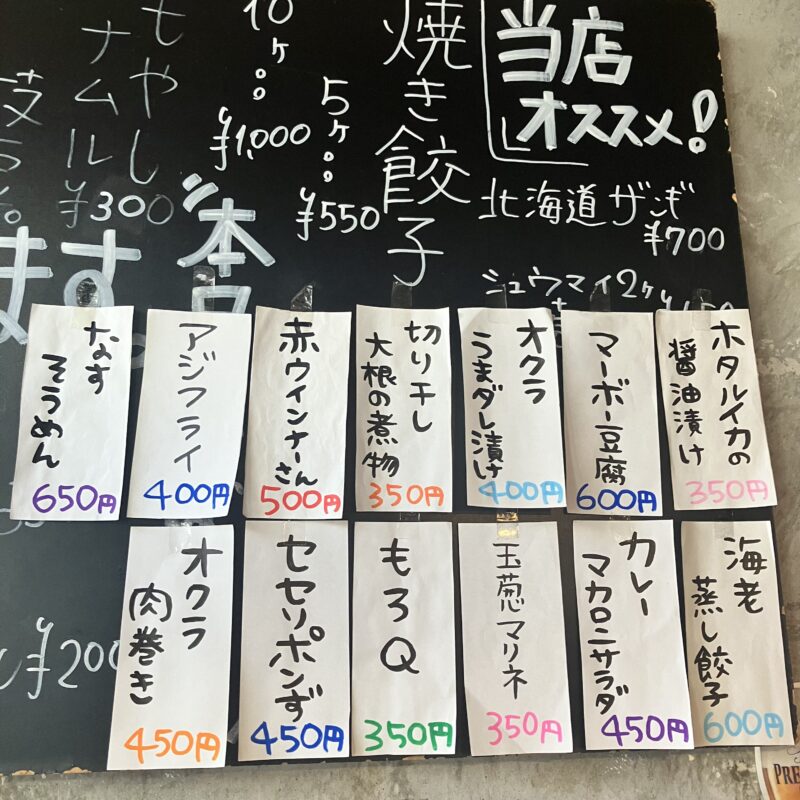 当店
オススメ!
北海道ザンギ
¥700
シュウマイ2ケ
焼き餃子
5ケ
¥550
10ケ
¥1,000
もやし
ナムル
¥300
ます。
¥200
ホタルイカの
醤油漬け
350円
マーボー豆腐
600円
オクラ
うまダレ漬け
400円
切り干し
大根の煮物
350円
赤ウインナーさん
500円
アジフライ
400円
なす
そうめん
650円
海老
蒸し餃子
600円
カレー
マカロニサラダ
450円
玉葱マリネ
350円
もろQ
350円
セセリポンず
450円
オクラ
肉巻き
450円